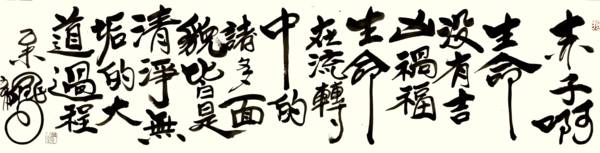 赤子啊
生命
没有吉
凶禍福
生命
在流轉
中的
諸多面
貌皆是
清淨無
垢的大
道過程